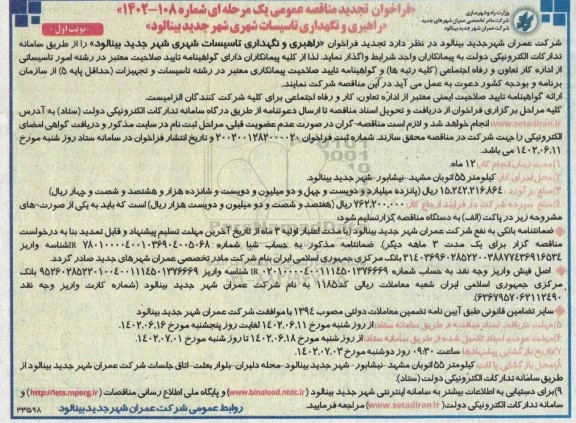 وزارت راه و شهرسازی
شرکت مادر تخصصی عمران شهرهای جدید
شرکت عمران شهر جدید بینالود
«فراخوان تجدید مناقصه عمومی یک مرحله ای شماره ۱۰۸-۱۴۰۲»
«راهبری و نگهداری تاسیسات شهری شهر جدید بینالود»
نوبت اول
شرکت عمران شهرجدید بینالود در نظر دارد تجدید فراخوان «راهبری و نگهداری تاسیسات شهری شهر جدید بینالود» را از طریق سامانه
تدارکات الکترونیکی دولت به پیمانکاران واجد شرایط واگذار نماید. لذا از کلیه پیمانکاران دارای گواهینامه تایید صلاحیت معتبر در رشته امور تاسیساتی
از اداره کار تعاون و رفاه اجتماعی (کلیه رتبه ها) و گواهینامه تایید صلاحیت پیمانکاری معتبر در رشته تاسیسات و تجهیزات (حداقل پایه ۵) از سازمان
برنامه و بودجه کشور دعوت به عمل می آید در این مناقصه شرکت نمایند.
ارائه گواهینامه تایید صلاحیت ایمنی معتبر از اداره تعاون، کار و رفاه اجتماعی برای کلیه شرکت کنندگان الزامیست.
کلیه مراحل برگزاری فراخوان از دریافت و تحویل اسناد مناقصه تا ارسال دعوتنامه از طریق درگاه سامانه تدارکات الکترونیکی دولت (ستاد) به آدرس
www.setadiran.ir انجام خواهد شد و لازم است مناقصه-گران در صورت عدم عضویت قبلی، مراحل ثبت نام در سایت مذکور و دریافت گواهی امضای
الکترونیکی را جهت شرکت در مناقصه محقق سازند. شماره ثبت فراخوان ۲۰۰۲۰۰۱۲۸۲۰۰۰۰۲۰ و تاریخ انتشار فراخوان در سامانه ستاد روز شنبه مورخ
۱۴۰۲.۰۶.۱۱ می باشد.
۱) مدت زمان انجام کار: ۱۲ ماه.
۲) محل اجرای کار: کیلومتر ۵۵ اتوبان مشهد-نیشابور-شهر جدید بینالود.
۳) مبلغ برآورد: ۱۵.۲۴۲.۲۱۶.۸۶۴ ریال (پانزده میلیارد و دویست و چهل و دو میلیون و دویست و شانزده هزار و هشتصد و شصت و چهار ریال)
۴) مبلغ سپرده شرکت در فرایند ارجاع کار: ۷۶۲.۲۰۰.۰۰۰ ریال (هفتصد و شصت و دو میلیون و دویست هزار ریال) است که باید به یکی از صورت-های
مشروحه زیر در پاکت (الف) به دستگاه مناقصه گزار تسلیم شود:
ضمانتنامه بانکی به نفع شرکت عمران شهر جدید بینالود (با مدت اعتبار اولیه ۳ ماه از تاریخ آخرین مهلت تسلیم پیشنهاد و قابل تمدید بنا به درخواست
مناقصه گزار برای یک مدت ۳ ماهه دیگر).
سایر تضامین قانونی طبق آیین نامه تضمین معاملات دولتی مصوب ۱۳۹۴ با موافقت شرکت عمران شهر جدید بینالود
۵) مهلت دریافت اسناد مناقصه از طریق سامانه ستاد: از روز شنبه مورخ ۱۴۰۲.۰۶.۱۱ لغایت روز پنجشنبه مورخ ۱۴۰۲.۰۶.۱۶
۶) مهلت عودت اسناد تکمیل شده از طریق سامانه ستاد: از روز شنبه مورخ ۱۴۰۲.۰۶.۱۸ تا روز شنبه مورخ ۱۴۰۲.۰۷.۰۱
۷) تاریخ بازگشایی پیشنهادها: ساعت ۰۹:۳۰ روز دوشنبه مورخ ۱۴۰۲.۰۷.۰۳
۸) محل بازگشایی پاکات: کیلومتر ۵۵ اتوبان مشهد-نیشابور-شهر جدید بینالود-محله دلبران-بلوار بعثت-اتاق جلسات شرکت عمران شهر جدید بینالود از
طریق سامانه تدارکات الکترونیکی دولت (ستاد).
۹) برای دستیابی به اطلاعات بیشتر به سامانه اینترنتی شهر جدید بینالود (www.binalood.ntdc.ir) و پایگاه ملی اطلاع رسانی مناقصات (http://iets.mporg.ir) و
سامانه تدارکات الکترونیکی دولت (www.setadiran.ir) مراجعه فرمایید.
روابط عمومی شرکت عمران شهر جدید بینالود
۳۳۵۹۸